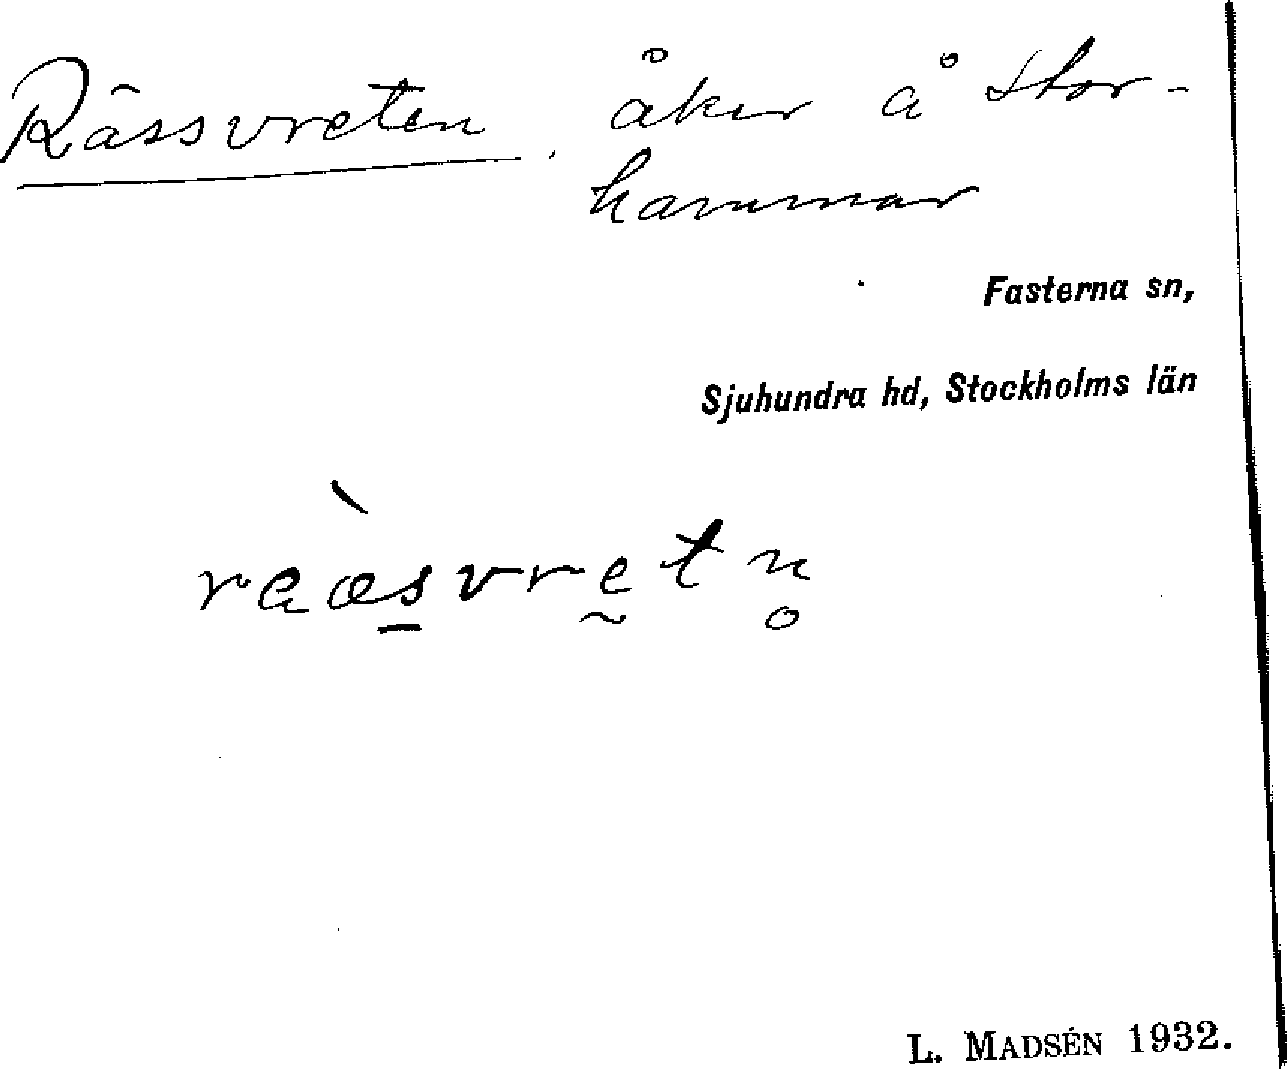 Rässvreten, åker å Stor-
hammar
Fasterna sn,
Sjuhundra hd, Stockholms län
L. MADSÉN 1932.